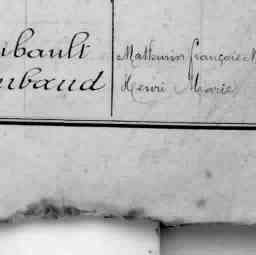 ibault Mathurin françois M
mbaud Henri Marie